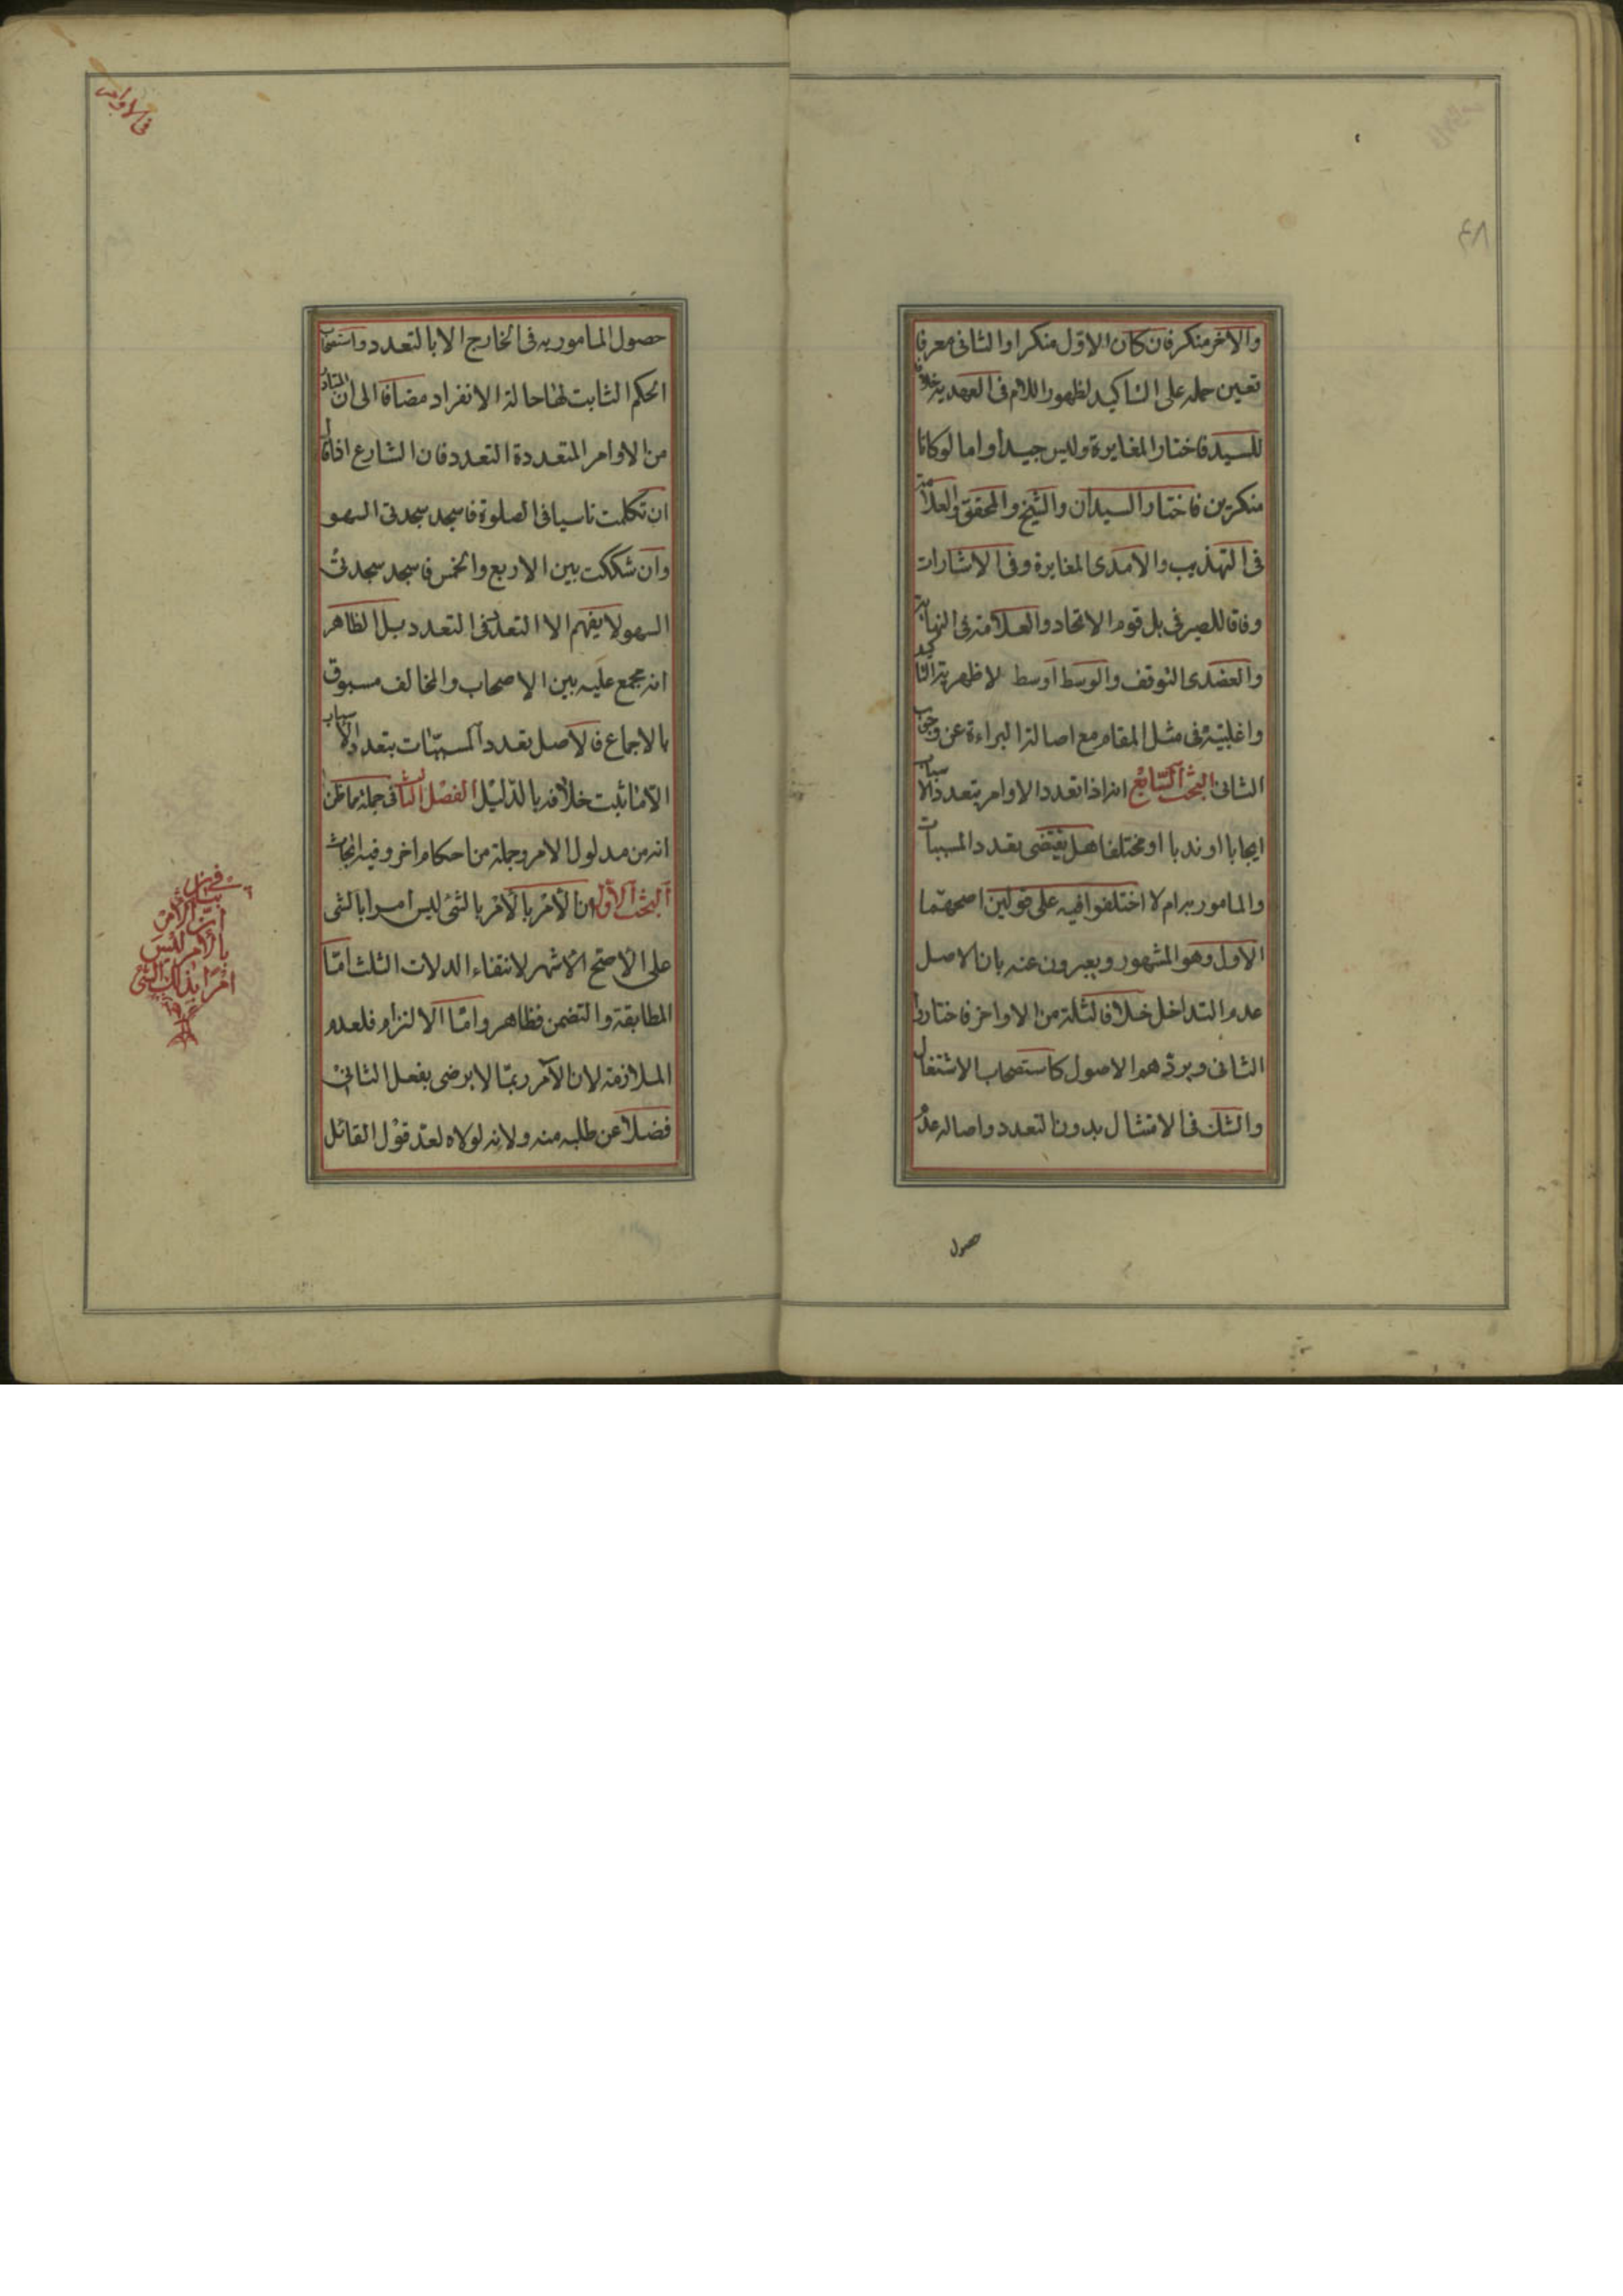 والاخر منكر فان كان الاول منكرا والثاني معرفا
تعين حمله على التاكيد لظهور اللام في العهدية خلافا
للسيد فاختار المغايرة وليس جيدا واما لو كانا
منكرين فاختار السيدان والشيخ والمحقق والعلامة
في التهذيب والامدى المغايرة وفي الاشارات
وفاقا للصيرفي بل قوم الاتحاد والعلامة في النهاية
والعضدى التوقف والوسط اوسط لاظهريته
واغلبيته في مثل المقام مع اصالة البراءة عن وجوب
الثاني البحث السابع انه اذا تعدد الاوامر بتعدد الاسباب
ايجابا او ندبا او مختلفا هل يقتضى تعدد المسببات
والمامور به ام لا اختلفوا فيه على قولين اصحهما
الاول وهو المشهور ويعبرون عنه بان الاصل
عدم التداخل خلافا لثلة من الاواخر فاختاروا
الثاني ويردهم الاصول كاستصحاب الاشتغال
والشك في الامتثال بدون التعدد واصالة عدم
حصول
في الاوامر
حصول المامور به في الخارج الا بالتعدد واستصحاب
الحكم الثابت لها حالة الانفراد مضافا الى ان المتبادر
من الاوامر المتعددة التعدد فان الشارع اذا قال
ان تكلمت ناسيا في الصلوة فاسجد سجدتى السهو
وان شككت بين الاربع والخمس فاسجد سجدتى
السهو لا يفهم الا التعدد بل الظاهر
انه مجمع عليه بين الاصحاب والمخالف مسبوق
بالاجماع فالاصل تعدد المسببات بتعدد الاسباب
الا ما ثبت خلافه بالدليل الفصل الثالث في جملة مما ظن
انه من مدلول الامر وجملة من احكام اخر وفيه ابحاث
البحث الاول ان الامر بالامر بالشئ ليس امرا بالشى
على الاصح الاشهر لانتفاء الدلات الثلث اما
المطابقة والتضمن فظاهر واما الالتزام فلعدم
الملازمة لان الآمر ربما لا يرضى بفعل الثاني
فضلا عن طلبه منه ولانه لولاه لعد قول القائل
في
بيان
ان الامر
بالامر ليس
امرا بذلك الشئ